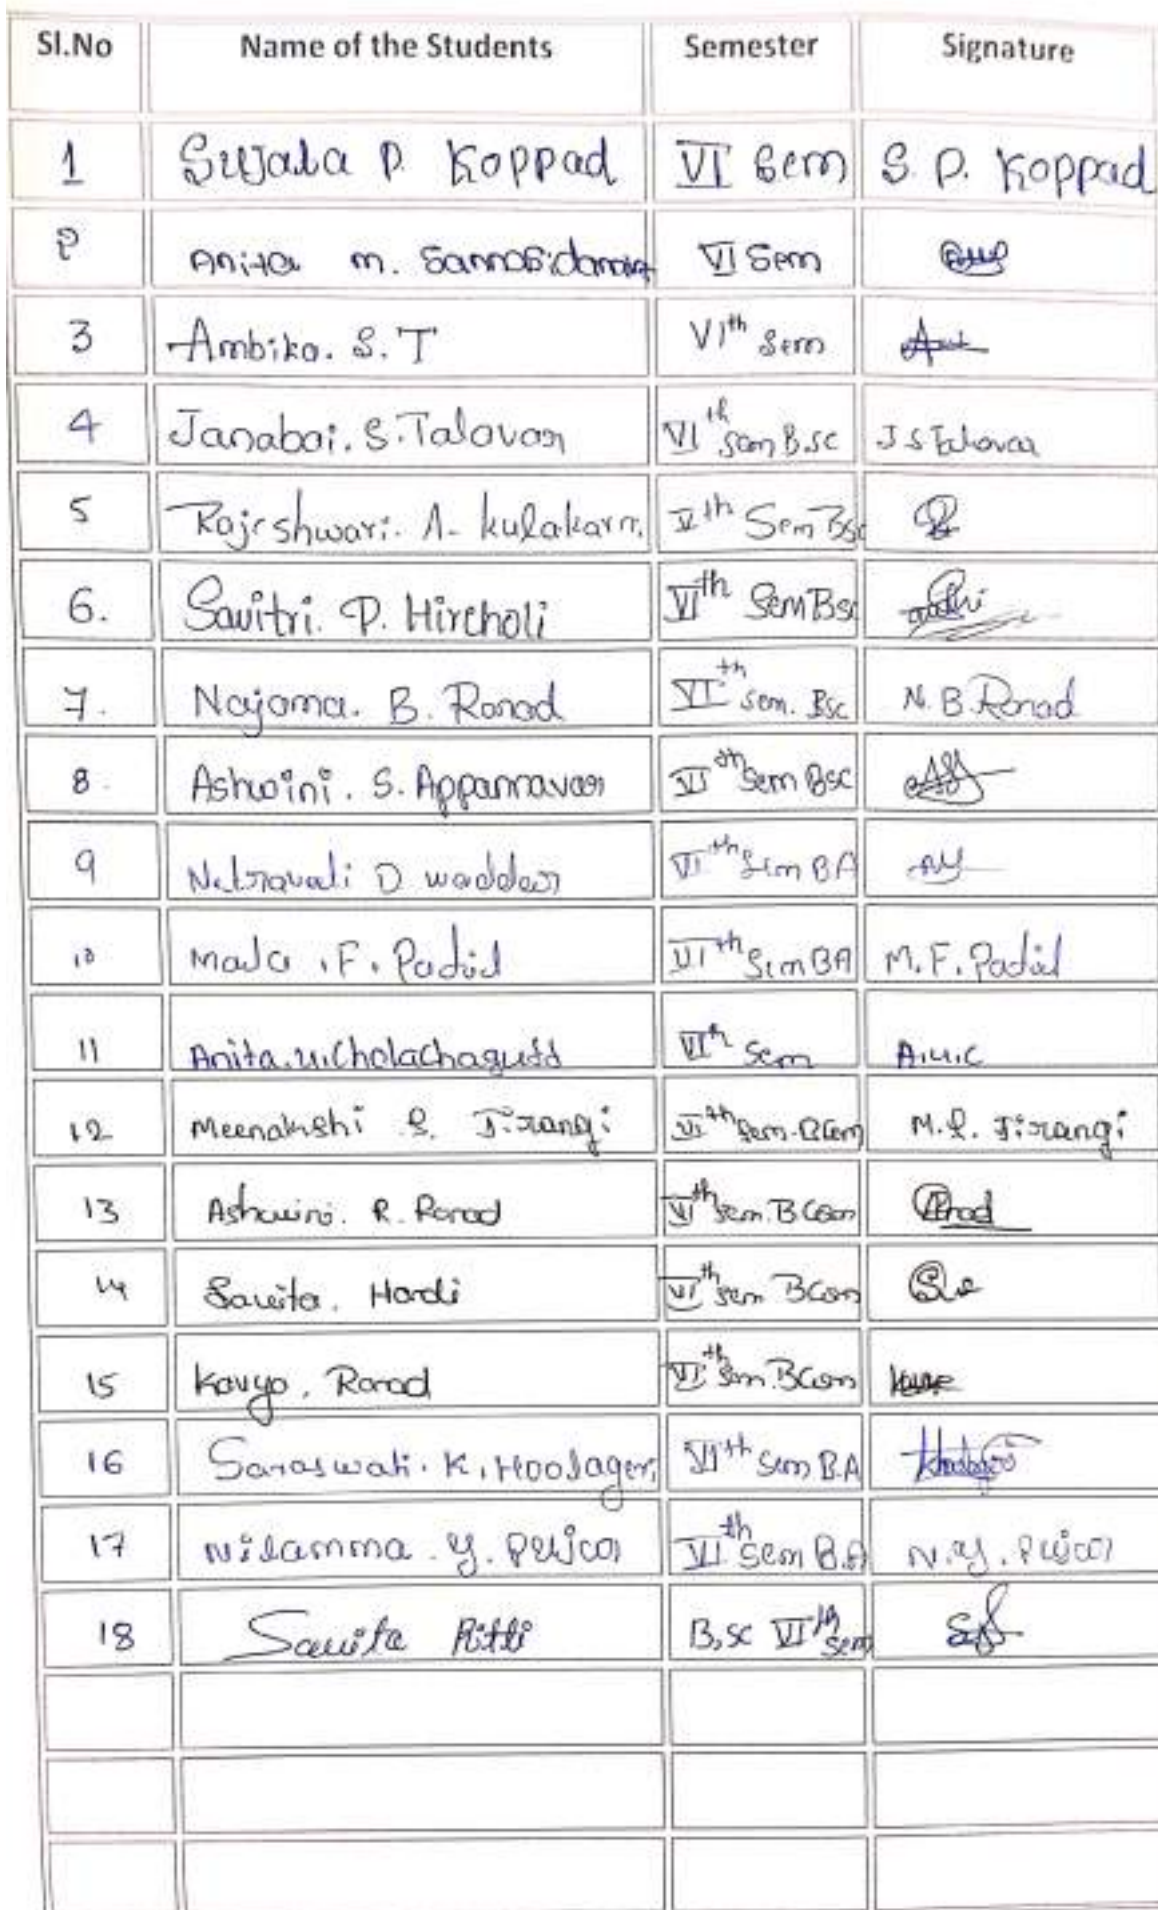 Sl.No Name of the Students Semester Signature
1 Sujala P. Koppad VI Sem S. P. Koppad
2 Anita m. VI Sem
3 Ambika. S. T VIth Sem
4 Janabai. S. Talavar VIth Sem B.sc J S Talavar
5 Rajeshwari. A. kulakarni Vth Sem Bsc
6. Savitri. P. Hireholi VIth Sem Bsc
7. Najama. B. Ronad VIth sem. Bsc N. B. Ronad
8. Ashwini. S. Appannavar VIth Sem Bsc
9 Netravati D waddar VIth Sem BA
10 Mala . F. Padil VIth Sem BA M. F. Padil
11 Anita. u. Cholachagudd VIth Sem A.u.C
12 Meenakshi S. Jirangi VIth Sem. BCom M. S. Jirangi
13 Ashwini. R. Ronad VIth Sem. BCom
14 Savita. Hardi VIth Sem BCom
15 Kavya. Ronad VIth Sem. BCom
16 Saraswati. K. Hoolageri VIth Sem B.A
17 Nilamma. y. Pujar VIth Sem B.A N. y. Pujar
18 Savita Ritti B.sc VIth Sem